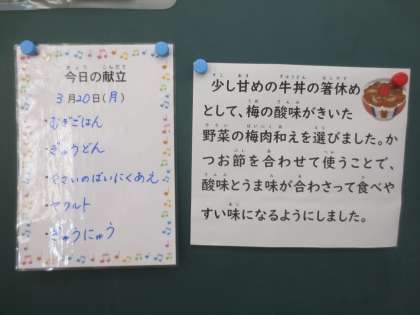 今日の献立
3月20日(月)
・むぎごはん
・ぎゅうどん
・やさいのばいにくあえ
・ヤクルト
・ぎゅうにゅう
少し甘めの牛丼の箸休め
として、梅の酸味がきいた
野菜の梅肉和えを選びました。か
つお節を合わせて使うことで、
酸味とうま味が合わさって食べや
すい味になるようにしました。